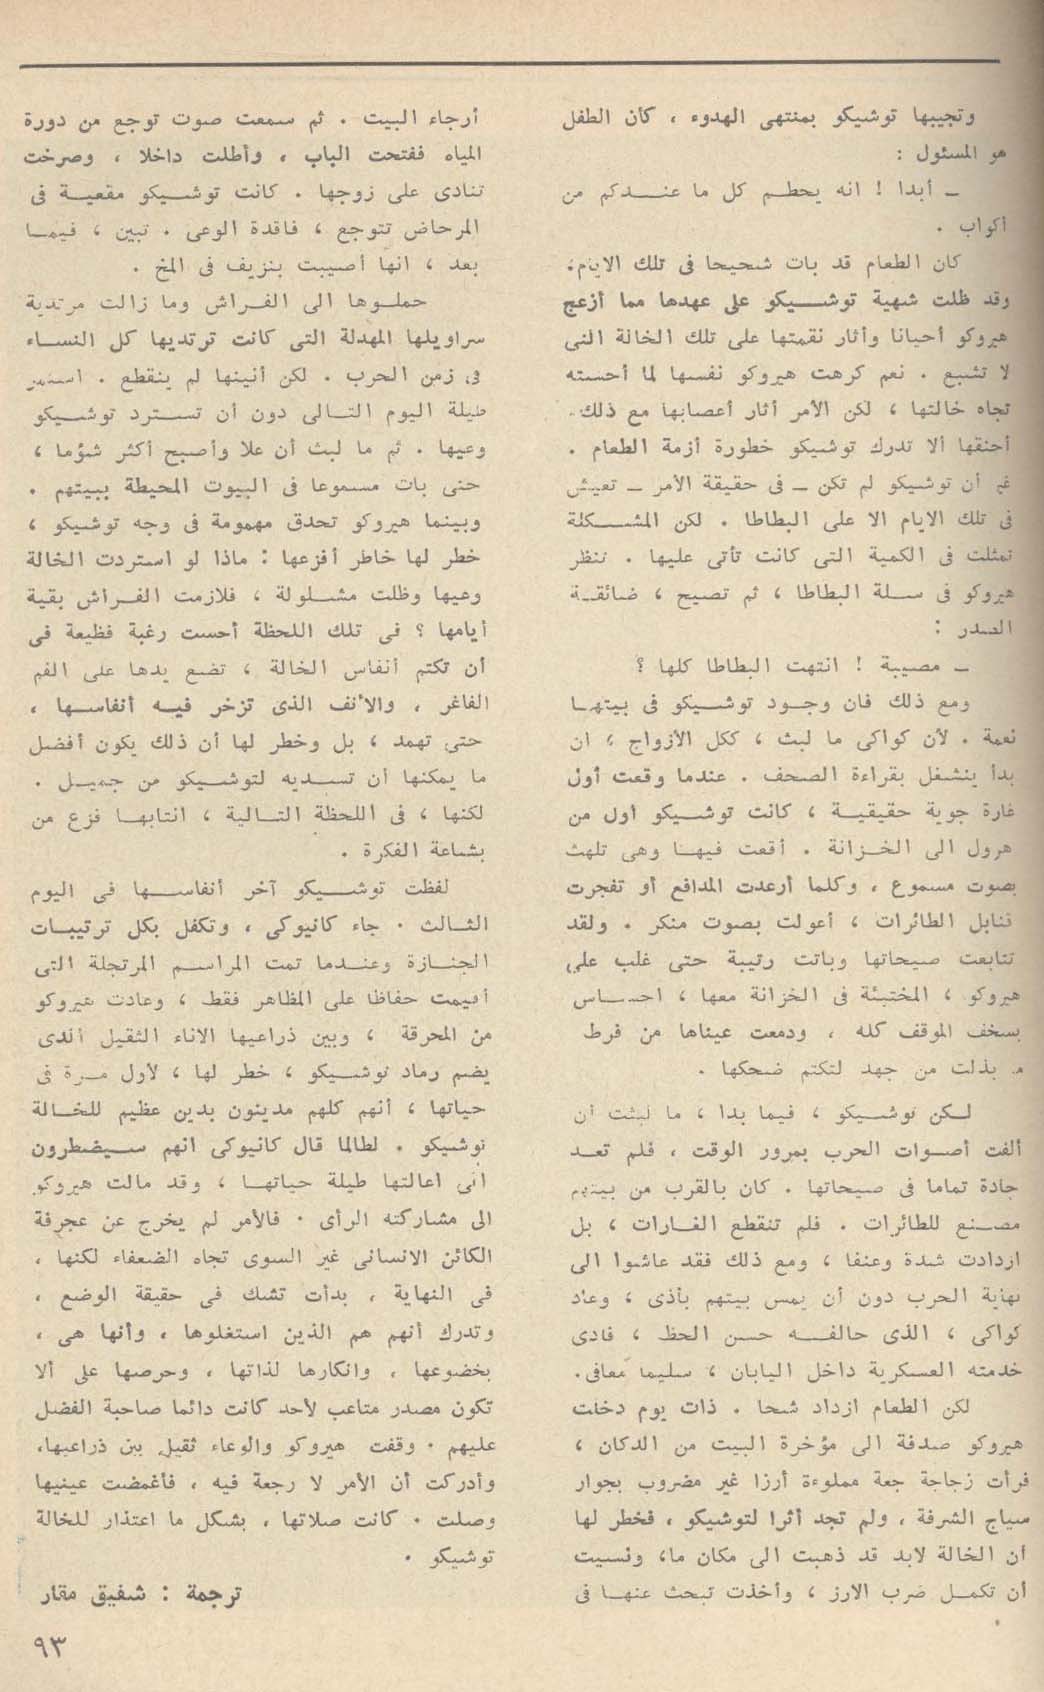 وتجيبها توشيكو بمنتهى الهدوء ، كأن الطفل
هو المسئول :
ـ أبدا ! انه يحطم كل ما عندكم من
أكواب .
كان الطعام قد بات شحيحا فى تلك الايام،
وقد ظلت شهية توشيكو على عهدها مما أزعج
هيروكو أحيانا وأثار نقمتها على تلك الخالة التى
لا تشبع . نعم كرهت هيروكو نفسها لما أحسته
تجاه خالتها ، لكن الأمر أثار أعصابها مع ذلك .
أحنقها ألا تدرك توشيكو خطورة أزمة الطعام .
غير أن توشيكو لم تكن ـ فى حقيقة الأمر ـ تعيش
فى تلك الايام الا على البطاطا . لكن المشكلة
تمثلت فى الكمية التى كانت تأتى عليها . تنظر
هيروكو فى سلة البطاطا ، ثم تصيح ، ضائقة
الصدر :
ـ مصيبة ! انتهت البطاطا كلها ؟
ومع ذلك فان وجود توشيكو فى بيتها
نعمة . لأن كواكى ما لبث ، ككل الأزواج ، ان
بدأ ينشغل بقراءة الصحف . عندما وقعت أول
غارة جوية حقيقية ، كانت توشيكو أول من
هرول الى الخزانة . أقعت فيها وهى تلهث
بصوت مسموع ، وكلما أرعدت المدافع أو تفجرت
قنابل الطائرات ، أعولت بصوت منكر . ولقد
تتابعت صيحاتها وباتت رتيبة حتى غلب على
هيروكو ، المختبئة فى الخزانة معها ، احساس
بسخف الموقف كله ، ودمعت عيناها من فرط
ما بذلت من جهد لتكتم ضحكها .
لكن توشيكو ، فيما بدا ، ما لبثت أن
ألفت أصوات الحرب بمرور الوقت ، فلم تعد
جادة تماما فى صيحاتها . كان بالقرب من بيتهم
مصنع للطائرات . فلم تنقطع الغارات ، بل
ازدادت شدة وعنفا ، ومع ذلك فقد عاشوا الى
نهاية الحرب دون أن يمس بيتهم بأذى ، وعاد
كواكى ، الذى حالفه حسن الحظ ، فادى
خدمته العسكرية داخل اليابان ، سليما مَعافى.
لكن الطعام ازداد شحا . ذات يوم دخلت
هيروكو صدفة الى مؤخرة البيت من الدكان ،
فرأت زجاجة جعة مملوءة أرزا غير مضروب بجوار
سياج الشرفة ، ولم تجد أثرا لتوشيكو ، فخطر لها
أن الخالة لابد قد ذهبت الى مكان ما، ونسيت
أن تكمل ضرب الارز ، وأخذت تبحث عنها فى
أرجاء البيت . ثم سمعت صوت توجع من دورة
المياه ففتحت الباب ، وأطلت داخلا ، وصرخت
تنادى على زوجها . كانت توشيكو مقعية فى
المرحاض تتوجع ، فاقدة الوعى . تبين ، فيما
بعد ، انها أصيبت بنزيف فى المخ .
حملوها الى الفراش وما زالت مرتدية
سراويلها المهدلة التى كانت ترتديها كل النساء
فى زمن الحرب . لكن أنينها لم ينقطع . استمر
طيلة اليوم التالى دون أن تسترد توشيكو
وعيها . ثم ما لبث أن علا وأصبح أكثر شؤما ،
حتى بات مسموعا فى البيوت المحيطة ببيتهم .
وبينما هيروكو تحدق مهمومة فى وجه توشيكو ،
خطر لها خاطر أفزعها : ماذا لو استردت الخالة
وعيها وظلت مشلولة ، فلازمت الفراش بقية
أيامها ؟ فى تلك اللحظة أحست رغبة فظيعة فى
أن تكتم أنفاس الخالة ، تضع يدها على الفم
الفاغر ، والأنف الذى تزخر فيه أنفاسها ،
حتى تهمد ، بل وخطر لها أن ذلك يكون أفضل
ما يمكنها ان تسديه لتوشيكو من جميل .
لكنها ، فى اللحظة التالية ، انتابها فزع من
بشاعة الفكرة .
لفظت توشيكو آخر أنفاسها فى اليوم
الثالث . جاء كانيوكى ، وتكفل بكل ترتيبات
الجنازة وعندما تمت المراسم المرتجلة التى
أقيمت حفاظا على المظاهر فقط ، وعادت هيروكو
من المحرقة ، وبين ذراعيها الاناء الثقيل الذى
يضم رماد توشيكو ، خطر لها ، لأول مرة فى
حياتها ، أنهم كلهم مدينون بدين عظيم للخالة
توشيكو . لطالما قال كانيوكى انهم سيضطرون
الى اعالتها طيلة حياتها ، وقد مالت هيروكو
الى مشاركته الرأى . فالأمر لم يخرج عن عجرفة
الكائن الانسانى غير السوى تجاه الضعفاء لكنها ،
فى النهاية ، بدأت تشك فى حقيقة الوضع ،
وتدرك أنهم هم الذين استغلوها ، وأنها هى ،
بخضوعها ، وانكارها لذاتها ، وحرصها على ألا
تكون مصدر متاعب لأحد كانت دائما صاحبة الفضل
عليهم . وقفت هيروكو والوعاء ثقيل بين ذراعيها،
وأدركت أن الأمر لا رجعة فيه ، فأغمضت عينيها
وصلت . كانت صلاتها ، بشكل ما اعتذار للخالة
توشيكو .
ترجمة : شفيق مقار
٩٣